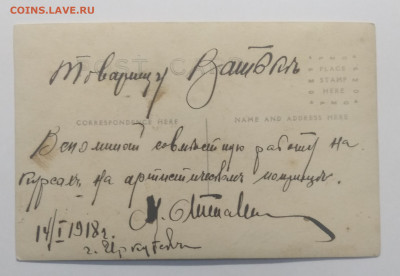 COINS.LAVE.RU
POST CARD
PLACE
STAMP
HERE
Товарищу
CORRESPONDENCE HERE
NAME AND ADDRESS HERE
Вспоминай совместную работу на
курсахъ на артистическомъ поприще.
14/I 1918 г.
г. Иркутскъ